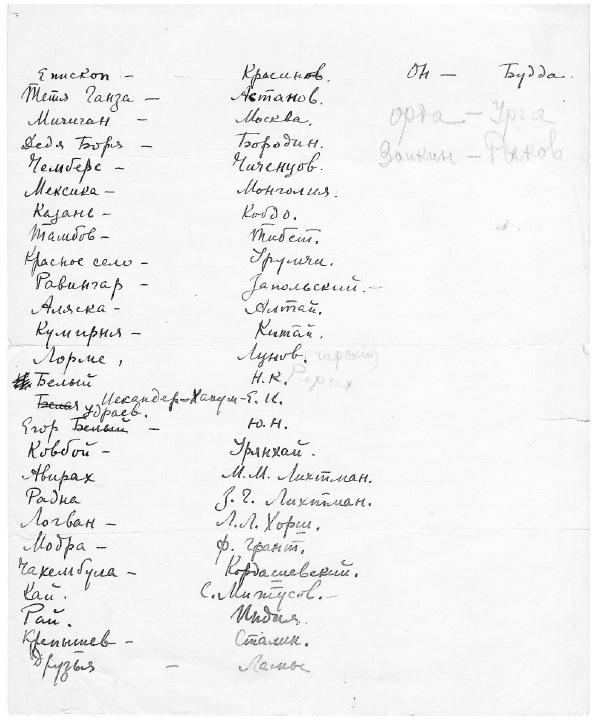 Епископ – Красинов. Он – Будда.
Тетя Ганза – Астанов.
Мичиган – Москва. Орда – Урга
Дядя Боря – Бородин. Заикин – Рыков
Чемберс – Чиченцов.
Мексика – Монголия.
Казань – Кобдо.
Тамбов – Тибет.
Красное село – Урумчи.
Равингар – Запольский. –
Аляска – Алтай.
Кумирня – Китай.
Лорме, Лунов. (чарский)
Белый Н.К. Рерих
Белая Искандер-Ханум – Е.И.
Егор Белый Удраев. – Ю.Н.
Ковбой – Урянхай.
Авирах М.М. Лихтман.
Радна З.Г. Лихтман.
Логван – Л.Л. Хорш.
Модра – Ф. Грант.
Чахембула – Кордашевский.
Кай. С. Митусов. –
Рай. Индия.
Крепышев – Сталин.
Друзья – Ламы